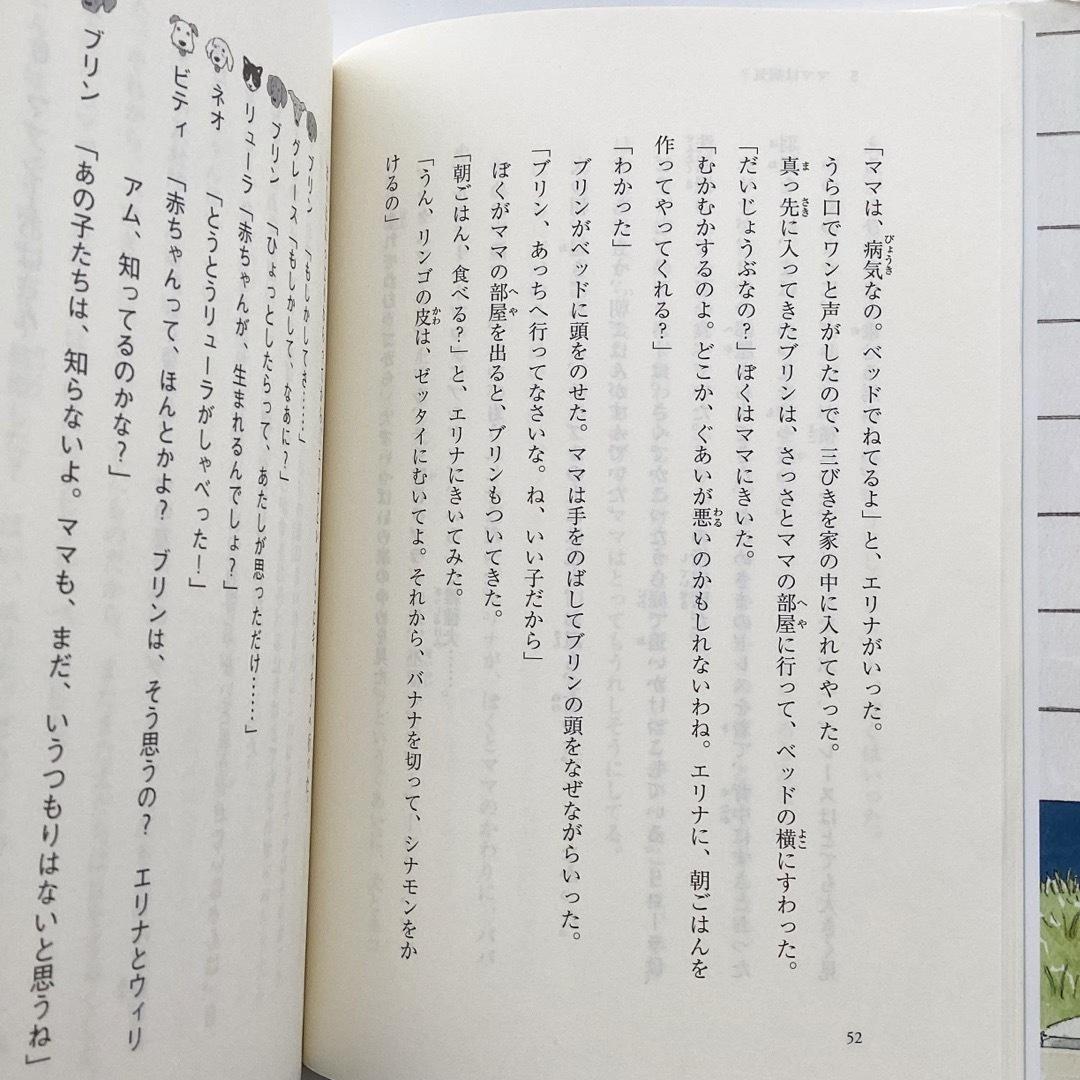 「ママは、病気なの。ベッドでねてるよ」と、エリナがいった。
うら口でワンと声がしたので、三びきを家の中に入れてやった。
真っ先に入ってきたブリンは、さっさとママの部屋に行って、ベッドの横にすわった。
「だいじょうぶなの？」ぼくはママにきいた。
「むかむかするのよ。どこか、ぐあいが悪いのかもしれないわね。エリナに、朝ごはんを
作ってやってくれる？」
「わかった」
ブリンがベッドに頭をのせた。ママは手をのばしてブリンの頭をなぜながらいった。
「ブリン、あっちへ行ってなさいな。ね、いい子だから」
ぼくがママの部屋を出ると、ブリンもついてきた。
「朝ごはん、食べる？」と、エリナにきいてみた。
「うん、リンゴの皮は、ゼッタイにむいてよ。それから、バナナを切って、シナモンをか
けるの」
52
ブリン「もしかしてさ……」
グレース「もしかして、なあに？」
ブリン「ひょっとしたらって、あたしが思っただけ……」
リューラ「赤ちゃんが、生まれるんでしょ？」
ネオ「とうとうリューラがしゃべった！」
ビティ「赤ちゃんって、ほんとかよ？ ブリンは、そう思うの？ エリナとウィリ
アム、知ってるのかな？」
ブリン「あの子たちは、知らないよ。ママも、まだ、いうつもりはないと思うね」